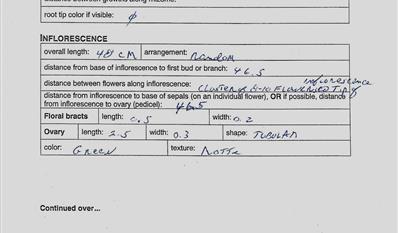 root tip color if visible: φ
INFLORESCENCE
overall length: 48 CM arrangement: random
distance from base of inflorescence to first bud or branch: 46.5
distance between flowers along inflorescence: CLUSTER of 8-10 FLOWERED TIP of inflorescence
distance from inflorescence to base of sepals (on an individual flower), OR if possible, distance
from inflorescence to ovary (pedicel): 46.5
Floral bracts length: 0.5 width: 0.2
Ovary length: 2.5 width: 0.3 shape: TUBULAR
color: Green texture: Matte
Continued over...